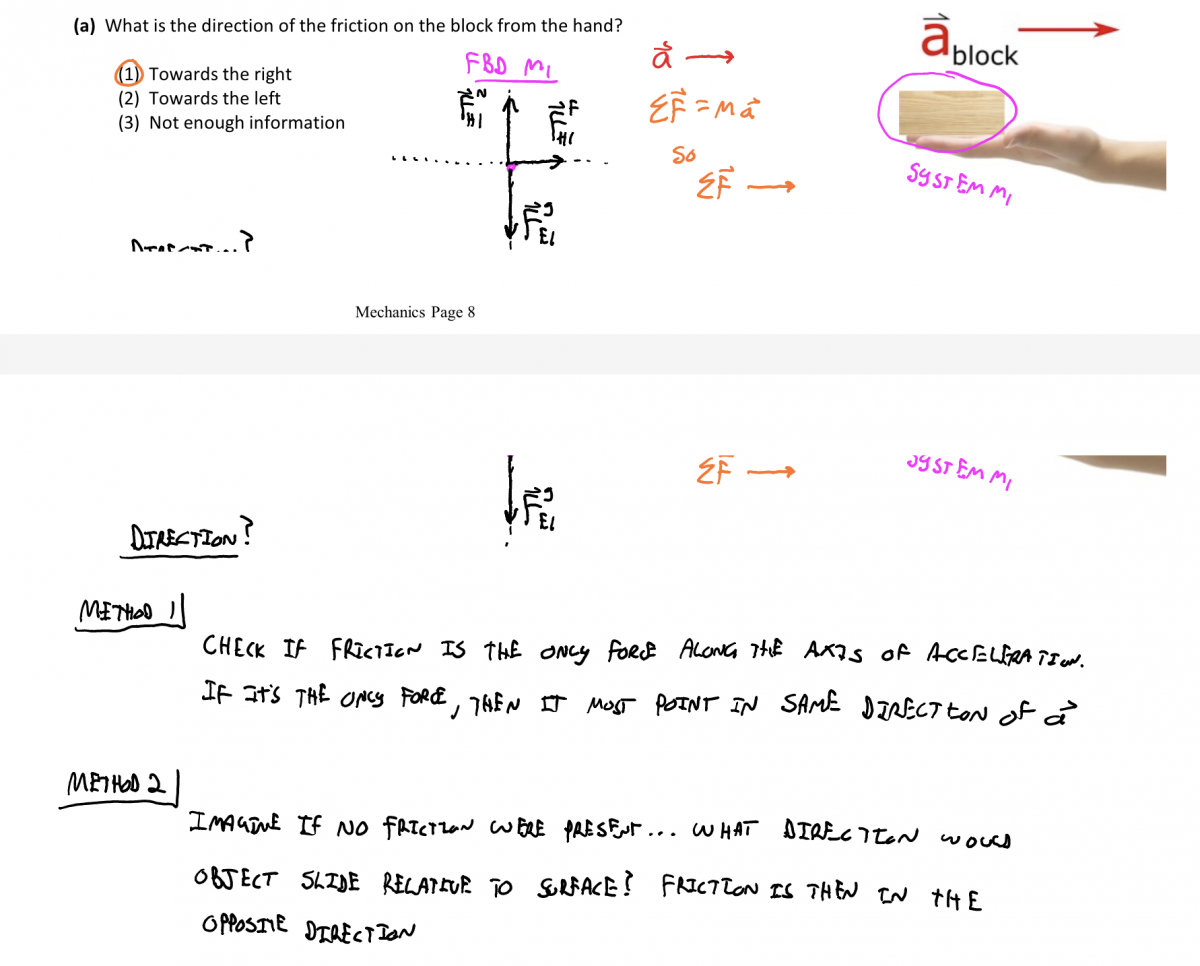 (a) What is the direction of the friction on the block from the hand?
(1) Towards the right
(2) Towards the left
(3) Not enough information
FBD M1
F⃗ᴺH1
F⃗ᶠH1
F⃗ᵍE1
a⃗ →
ΣF⃗ = Ma⃗
So
ΣF⃗ →
a⃗block
SYSTEM M1
Mechanics Page 8
ΣF →
SYSTEM M1
F⃗ᵍE1
DIRECTION?
METHOD 1
CHECK IF FRICTION IS THE ONLY FORCE ALONG THE AXIS OF ACCELERATION.
IF IT'S THE ONLY FORCE, THEN IT MOST POINT IN SAME DIRECTION OF a⃗
METHOD 2
IMAGINE IF NO FRICTION WERE PRESENT... WHAT DIRECTION WOULD
OBJECT SLIDE RELATIVE TO SURFACE? FRICTION IS THEN IN THE
OPPOSITE DIRECTION